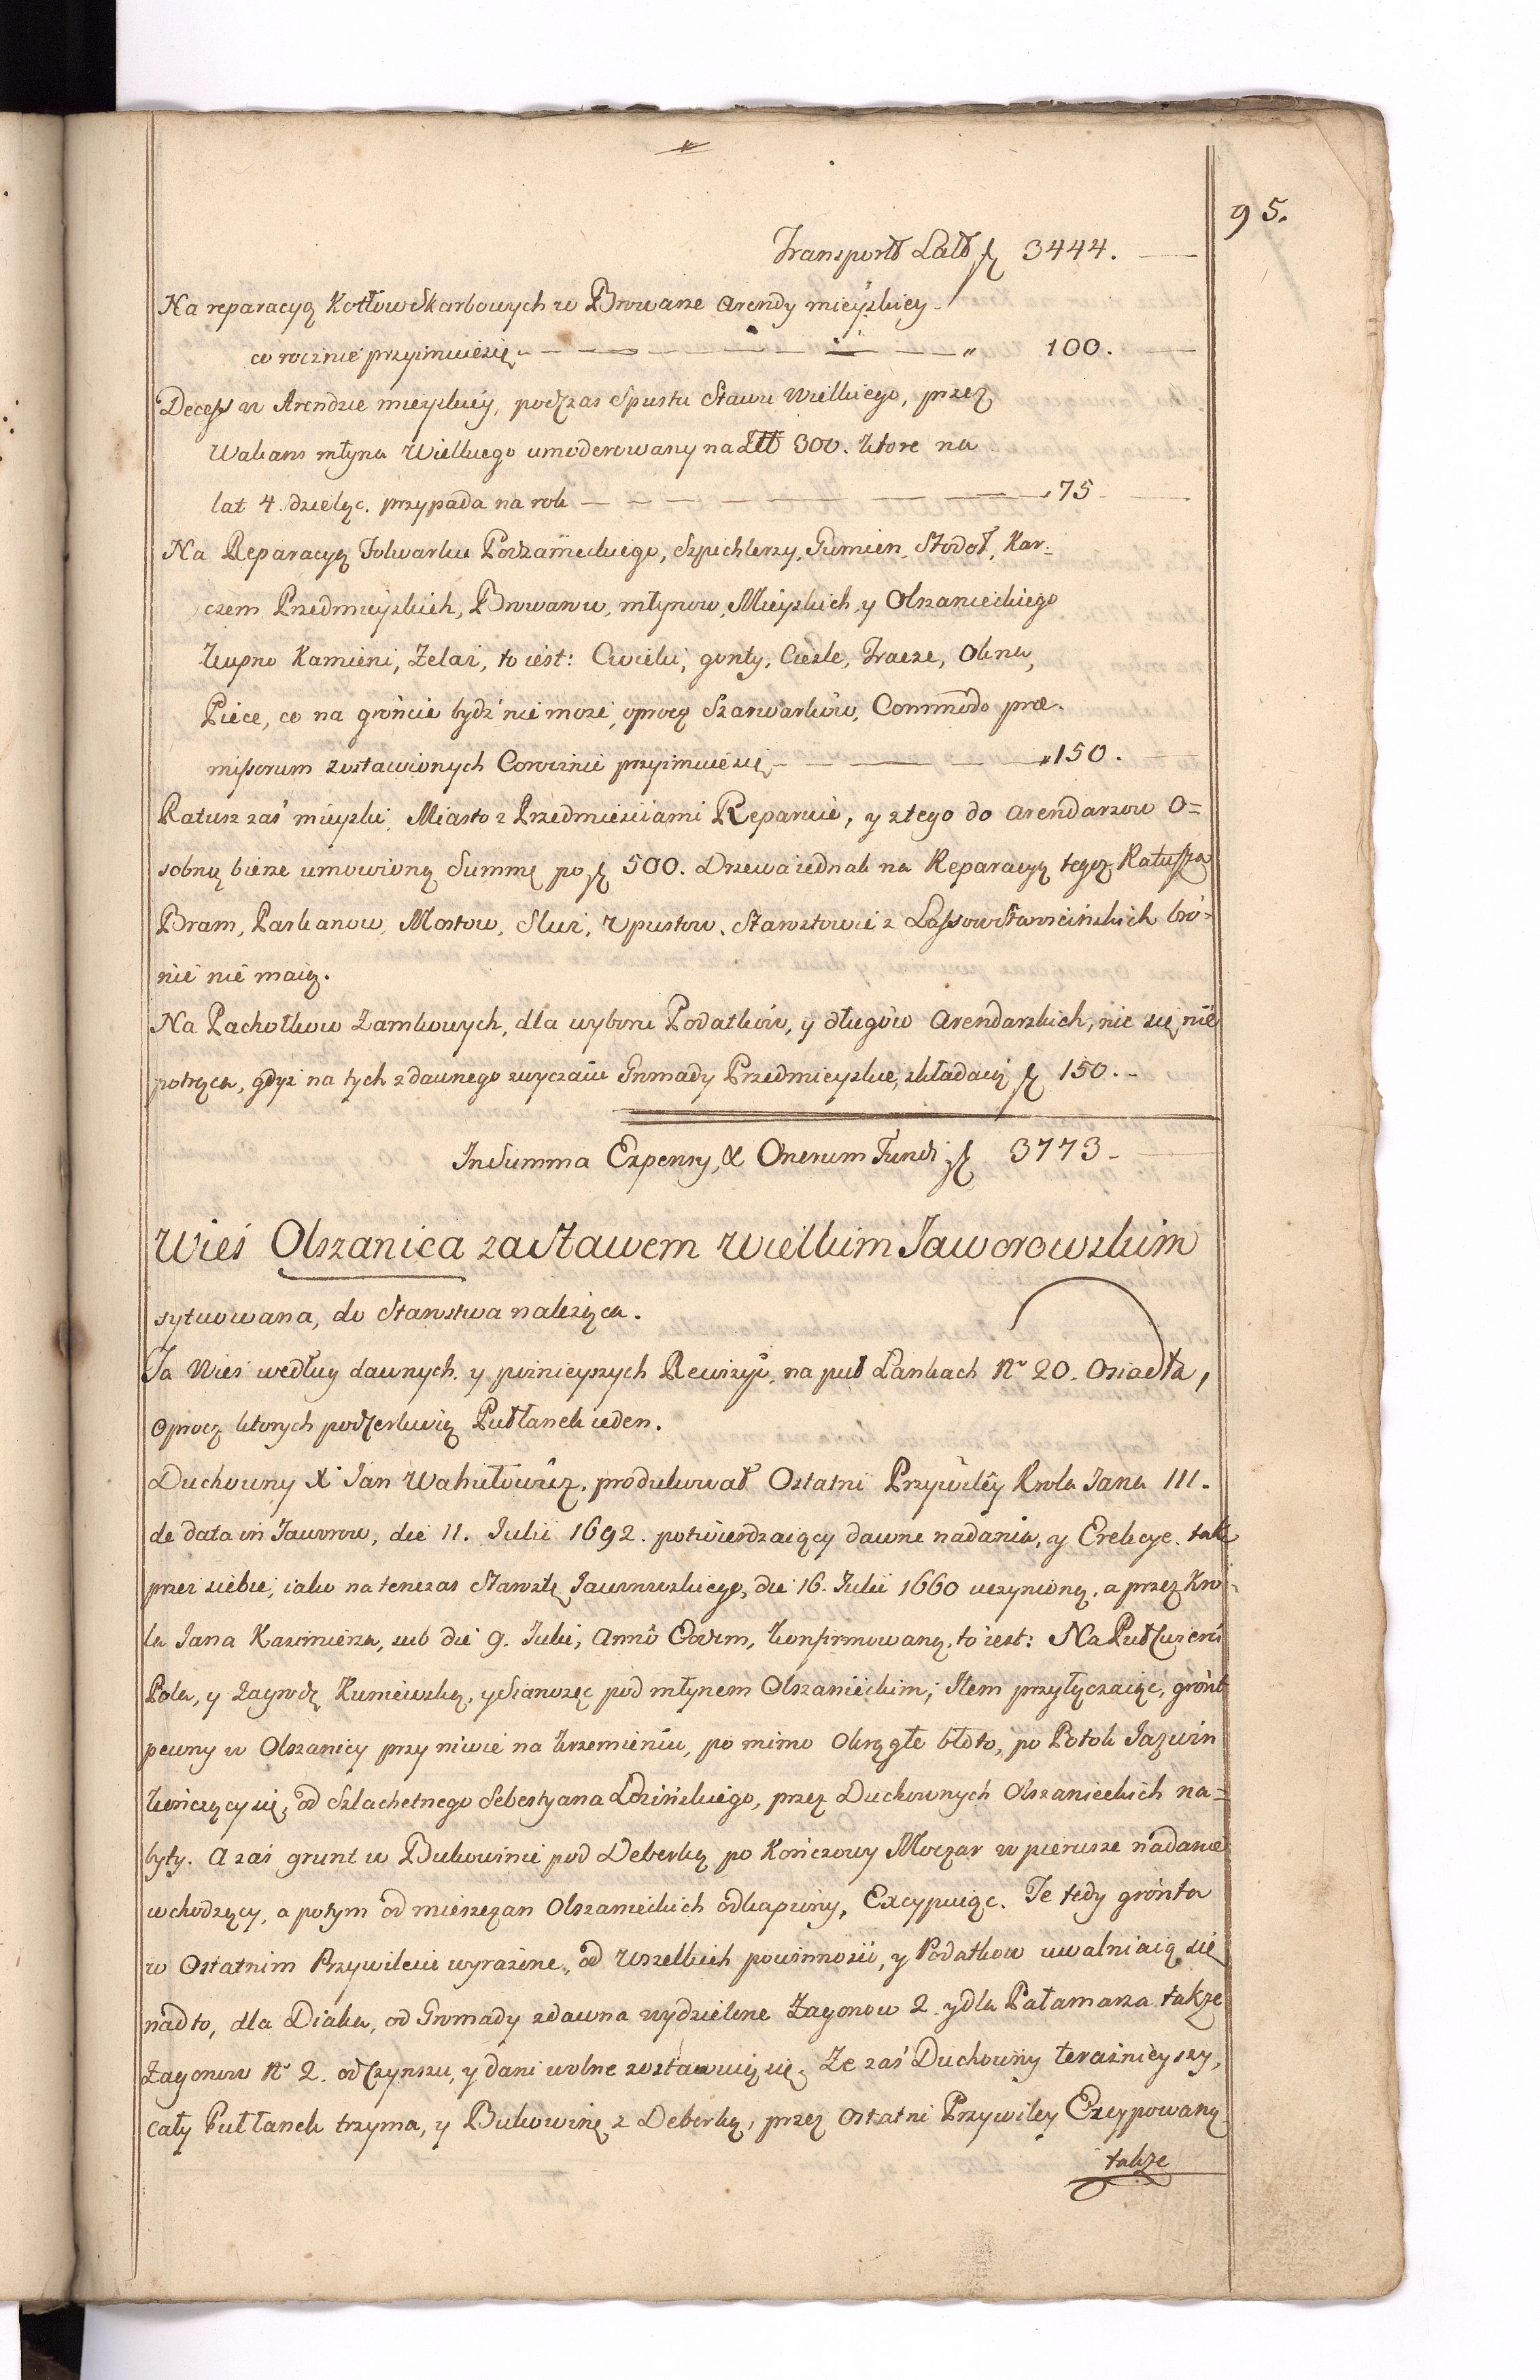 95.
Transport Latł 3444.
Na reparacyą Kotłow Skarbowych w Browarze Arendy mieyskiey
co rocznie przyimuie się 100.
Decess w Arendzie mieyskiey, podczas Spustu Stawu Wielkiego, przez
Wakans młyna Wielkiego umoderowany na 300. Ktore na
lat 4. dzieląc. przypada na rok 75
Na Reparacyą Folwarku Podzameckiego, Szpichlerzy, Gumien, Stodoł, Kar=
czem Przedmieyskich, Browaru, młynow, Mieyskich, y Olszanieckiego
Kupno Kamieni, Zelaz, to iest: Cwieki, gonty, Cieśle, Tracze, Okna,
Piece, co na gróncie bydź nie może, oprocz Szarwarków, Commodo præ-
missorum zostawionych Corocznie przyimuie się 150.
Ratusz zaś mieyski, Miasto z Przedmieściami Reparuie, y z tego do Arendarzow O=
sobną bierze umowioną Summę po 500. Drzewa iednak na Reparacyą tegoz Ratusza
Bram, Parkanow, Mostow, Sluz, Upustow, Starostowie z Lassow Starościńskich bro=
nić nie maią.
Na Pachołkow Zamkowych, dla wyboru Podatków, y długów Arendarskich, nic się nie
potrąca, gdyż na tych z dawnego zwyczaiu Gromady Przedmieyskie, składaią 150.
In Summa Expensy, & Onerum Fundi 3773
Wieś Olszanica za Stawem Wielkim Jaworowskim
sytuowana, do Starostwa należąca.
Ta Wieś według dawnych, y poznieyszych Rewizyi, na puł Łankach No 20. Osiadła,
oprocz ktorych Pułłanek ieden.
Duchowny X Jan Wahułowicz, produkował Ostatni Przywiley Krola Jana III.
de data in Jaworow, die 11. Julii 1692. potwierdzaiący dawne nadania, y Erekcye. tak
przez siebie, iako na tenczas Starostę Jaworowskiego, die 16. Julii 1660 uczynioną, a przez Kro=
la Jana Kazimierza, sub die 9. Julii, Anno Eodem, konfirmowaną, to iest: Na
Pola, y Zagrodę Kumiewską, y Sianożęć pod młynem Olszanieckim; Item przyłączaiąc, grónt
pewny w Olszanicy przy niwie na Krzemieniu, po mimo Okrągłe błoto, po Potok Jazwin
kończący się, od Szlachetnego Sebestyana Łozińskiego, przez Duchownych Olszanieckich na=
byty. A zaś grunt w Bukowinie pod Deberką po Kończowy Moczar w pierwsze nadanie
wchodzący, a potym od mieszczan Olszanieckich odkupiony, Excypuiąc. Te tedy grónta
w Ostatnim Przywileiu wyrażone, od wszelkich powinności, y Podatkow uwalniaią się
nadto, dla Diaka, od Gromady zdawna wydzielone Zagonow 2. y dla Pałamarza także
Zagonow No 2. od Czynszu, y dani wolne zostawuią się. Ze zaś Duchowny teraźnieyszy,
cały Pułłanek trzyma, y Bukowinę z Deberką, przez Ostatni Przywiley Excypowaną
także